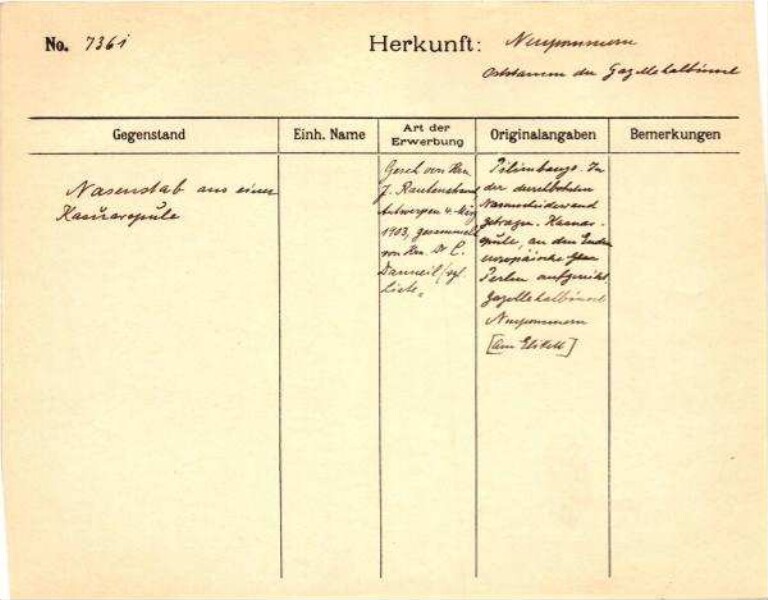 No. 7361
Herkunft: Neupommern
Oststamm der Gazellehalbinsel
Gegenstand
Einh. Name
Art der
Erwerbung
Originalangaben
Bemerkungen
Nasenstab aus einer
Kasuarspule
Gesch von Hrn
J. Rautenstrauch
Antwerpen 4. März
1903, gesammelt
von Hrn. Dr C.
Danneil (vgl.
Liste.
In
der durchbohrten
Nasenscheidewand
getragen. Kasuar-
spule, an den Enden
europäische
Perlen aufgereiht.
Gazellehalbinsel
Neupommern